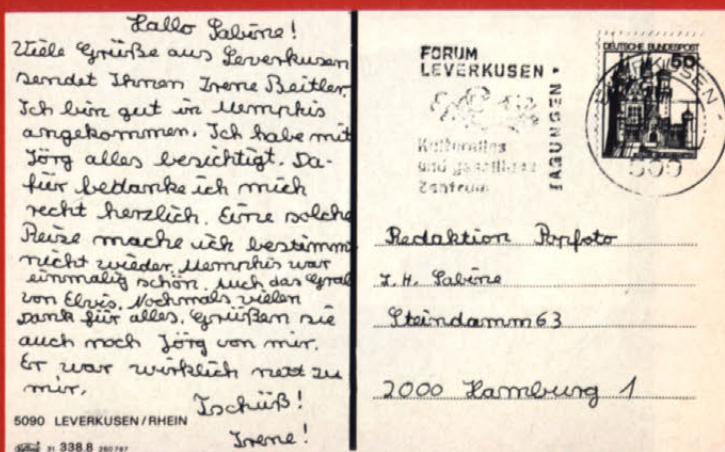 Hallo Sabine!
Viele Grüße aus Leverkusen
sendet Ihnen Irene Beitler.
Ich bin gut in Memphis
angekommen. Ich habe mit
Jörg alles besichtigt. Da-
für bedanke ich mich
recht herzlich. Eine solche
Reise mache ich bestimm
nicht wieder. Memphis war
einmalig schön. Auch das Grab
von Elvis. Nochmals vielen
Dank für alles. Grüßen sie
auch noch Jörg von mir.
Er war wirklich nett zu
mir.
Tschüß!
Irene!
5090 LEVERKUSEN/RHEIN
338.8
FORUM
LEVERKUSEN
TAGUNGEN
Kulturelles
und
Zentrum
DEUTSCHE BUNDESPOST
50
509
Redaktion Popfoto
z.H. Sabine
Steindamm 63
2000 Hamburg 1